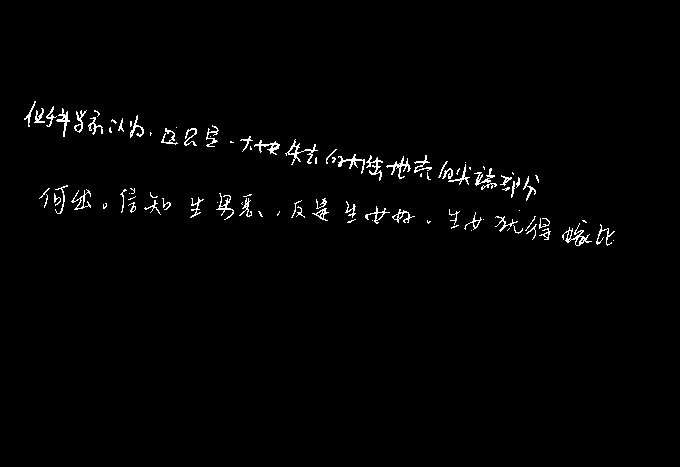 但科学家认为,这只是一大块失去的大陆地壳的尖端部分
何出。信知生男恶,反是生女好。生女犹得嫁比